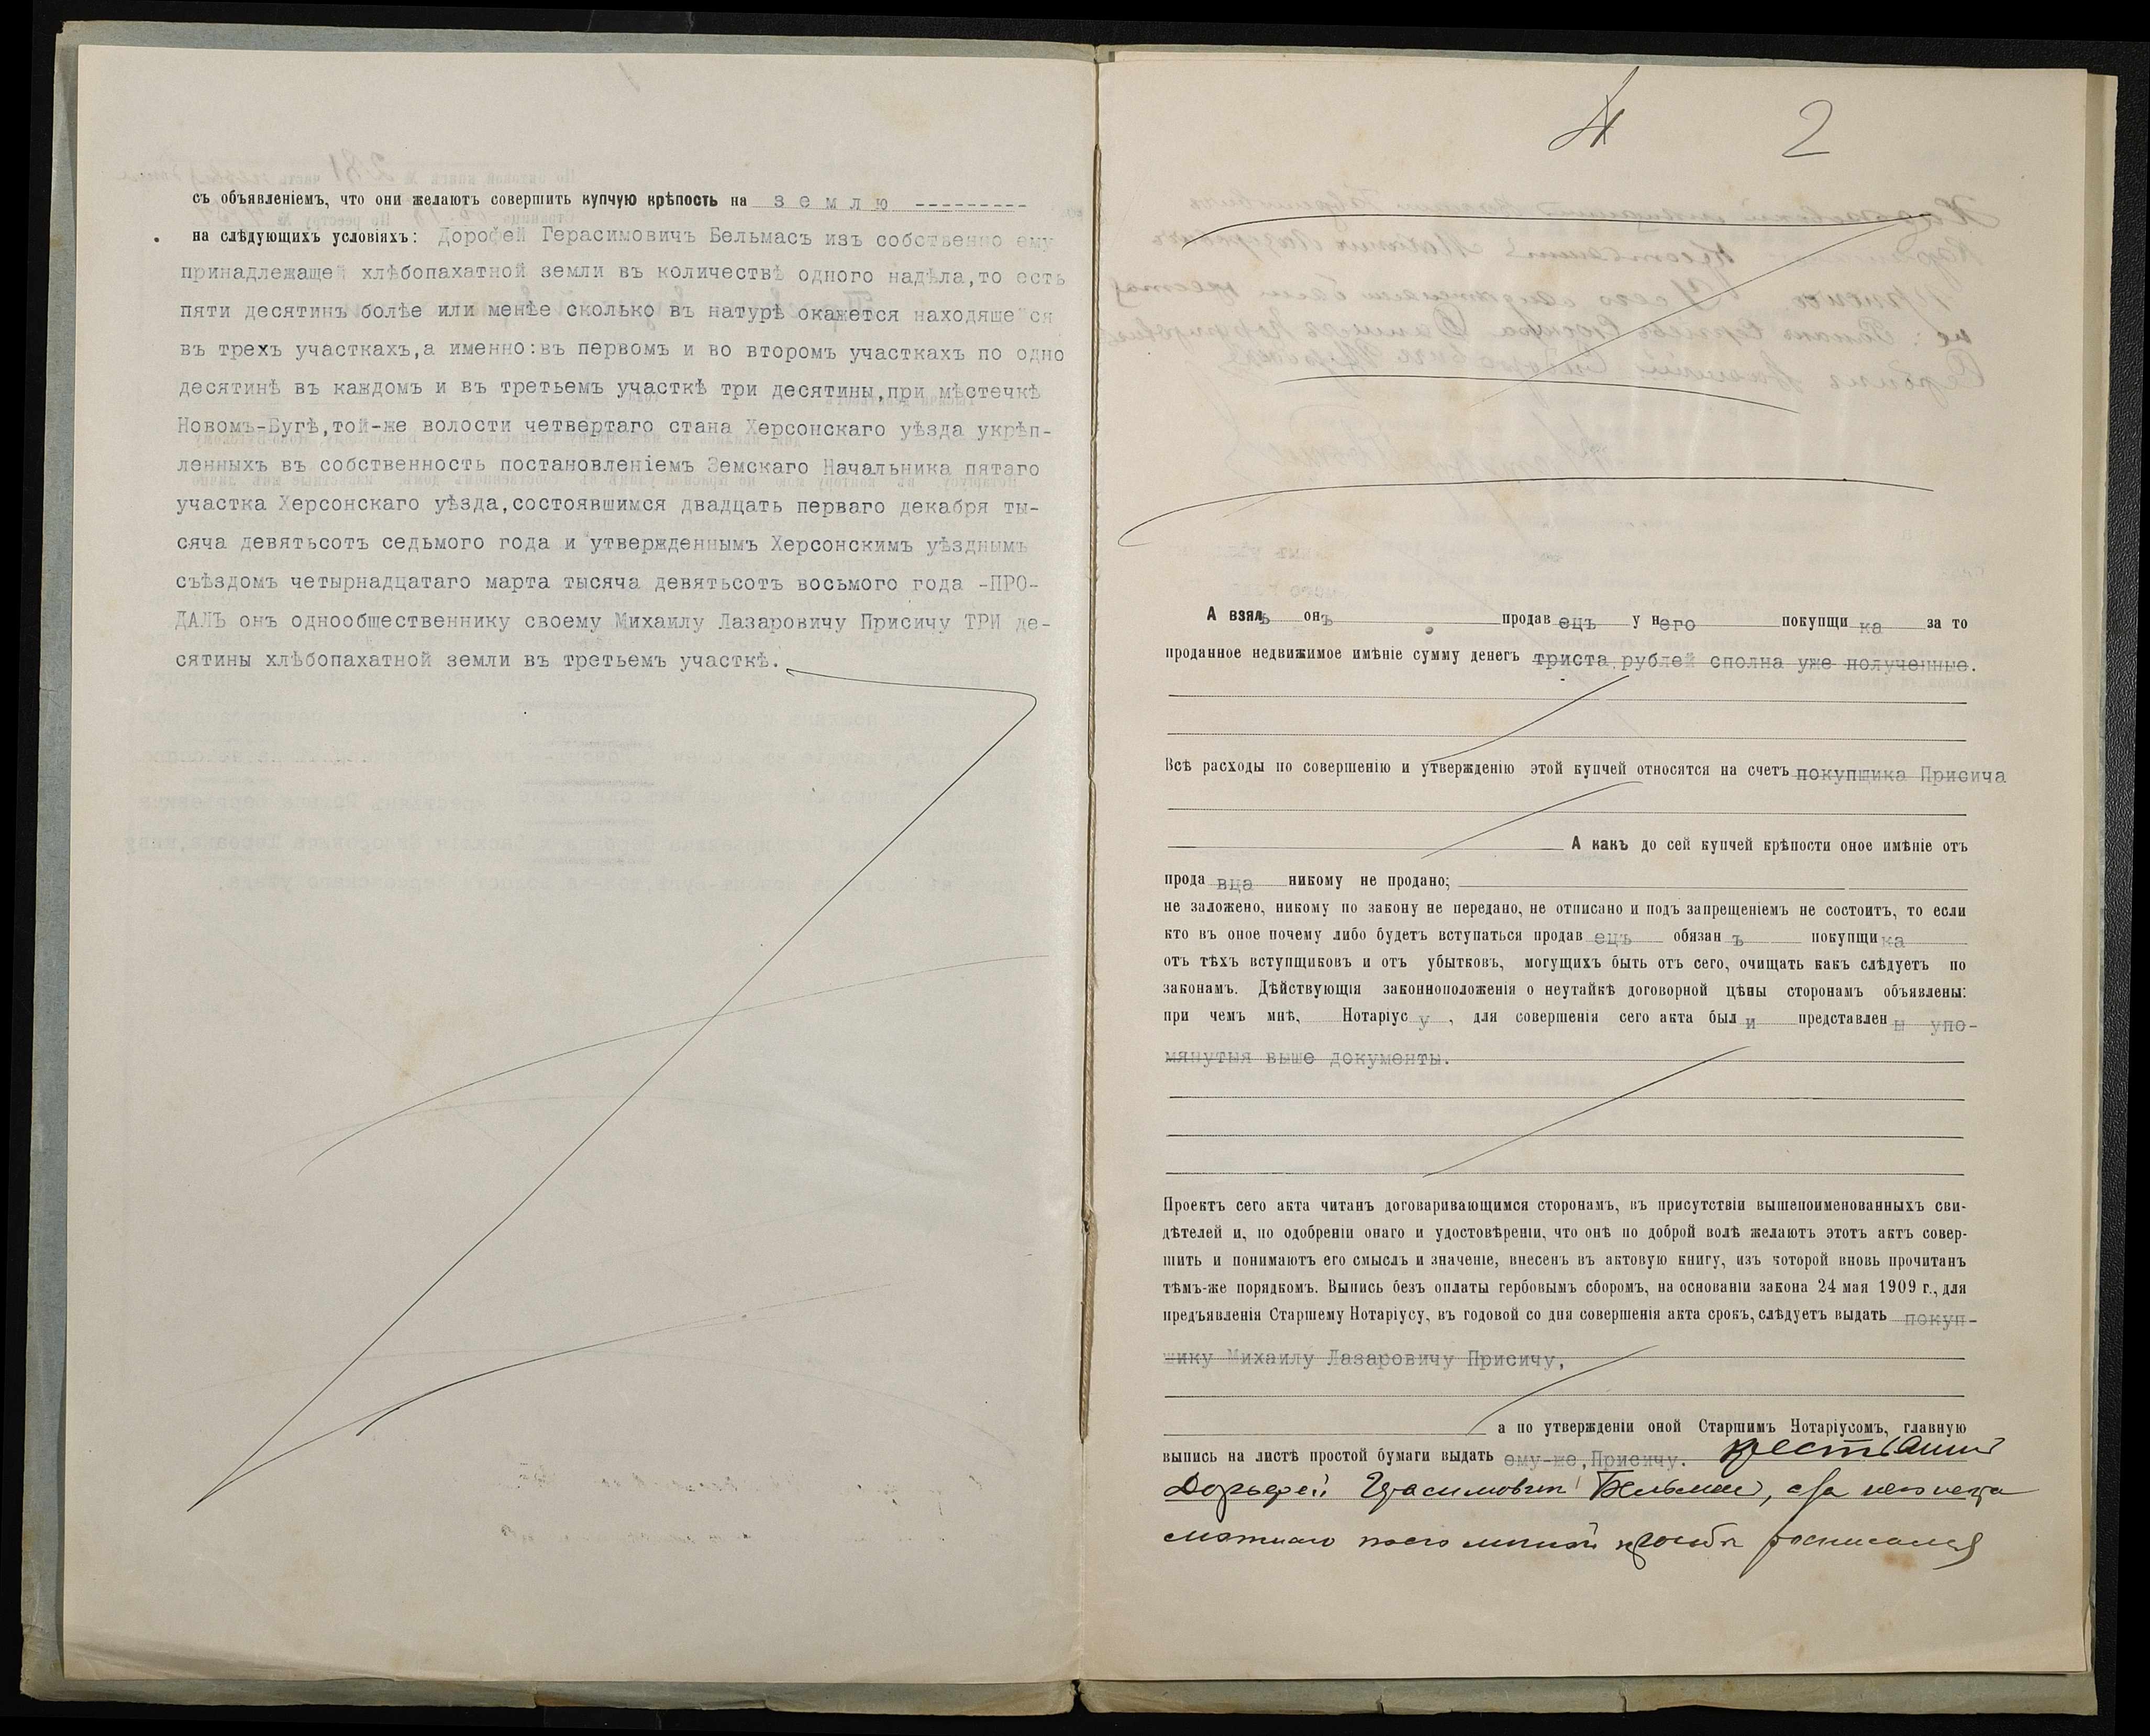 съ объявленіемъ, что они желаютъ совершить купчую крѣпость на землю ---------
на слѣдующихъ условіяхъ: Дорофей Герасимовичъ Бельмасъ изъ собственно ему
принадлежащей хлѣбопахатной земли въ количествѣ одного надѣла,то есть
пяти десятинъ болѣе или менѣе сколько въ натурѣ окажется находящейся
въ трехъ участкахъ,а именно:въ первомъ и во второмъ участкахъ по одно
десятинѣ въ каждомъ и въ третьемъ участкѣ три десятины,при мѣстечкѣ
Новомъ-Бугѣ,той-же волости четвертаго стана Херсонскаго уѣзда укрѣп-
ленныхъ въ собственность постановленіемъ Земскаго Начальника пятаго
участка Херсонскаго уѣзда,состоявшимся двадцать перваго декабря ты-
сяча девятьсотъ седьмого года и утвержденнымъ Херсонскимъ уѣзднымъ
съѣздомъ четырнадцатаго марта тысяча девятьсотъ восьмого года -ПРО-
ДАЛЪ онъ однообщественнику своему Михаилу Лазаровичу Присичу ТРИ де-
сятины хлѣбопахатной земли въ третьемъ участкѣ.
2
А взялъ онъ продавецъ у него покупщика за то
проданное недвижимое имѣніе сумму денегъ триста рублей сполна уже полученные.
Всѣ расходы по совершенію и утвержденію этой купчей относятся на счетъ покупщика Присича
А какъ до сей купчей крѣпости оное имѣніе отъ
продавца никому не продано;
не заложено, никому по закону не передано, не отписано и подъ запрещеніемъ не состоитъ, то если
кто въ оное почему либо будетъ вступаться продавецъ обязанъ покупщика
отъ тѣхъ вступщиковъ и отъ убытковъ, могущихъ быть отъ сего, очищать какъ слѣдуетъ по
законамъ. Дѣйствующія законноположенія о неутайкѣ договорной цѣны сторонамъ объявлены:
при чемъ мнѣ, Нотаріусу, для совершенія сего акта были представлены упо-
мянутыя выше документы.
Проектъ сего акта читанъ договаривающимся сторонамъ, въ присутствіи вышепоименованныхъ сви-
дѣтелей и, по одобреніи онаго и удостовѣреніи, что онѣ по доброй волѣ желаютъ этотъ актъ совер-
шить и понимаютъ его смыслъ и значеніе, внесенъ въ актовую книгу, изъ которой вновь прочитанъ
тѣмъ-же порядкомъ. Выпись безъ оплаты гербовымъ сборомъ, на основаніи закона 24 мая 1909 г., для
предъявленія Старшему Нотаріусу, въ годовой со дня совершенія акта срокъ, слѣдуетъ выдать покуп-
щику Михаилу Лазаровичу Присичу,
а по утвержденіи оной Старшимъ Нотаріусомъ, главную
выпись на листѣ простой бумаги выдать ему-же,Присичу. крестьянинъ
Дорофей Герасимовичъ Бельмасъ, а за него негра
мотнаго по его личной просьбѣ росписался